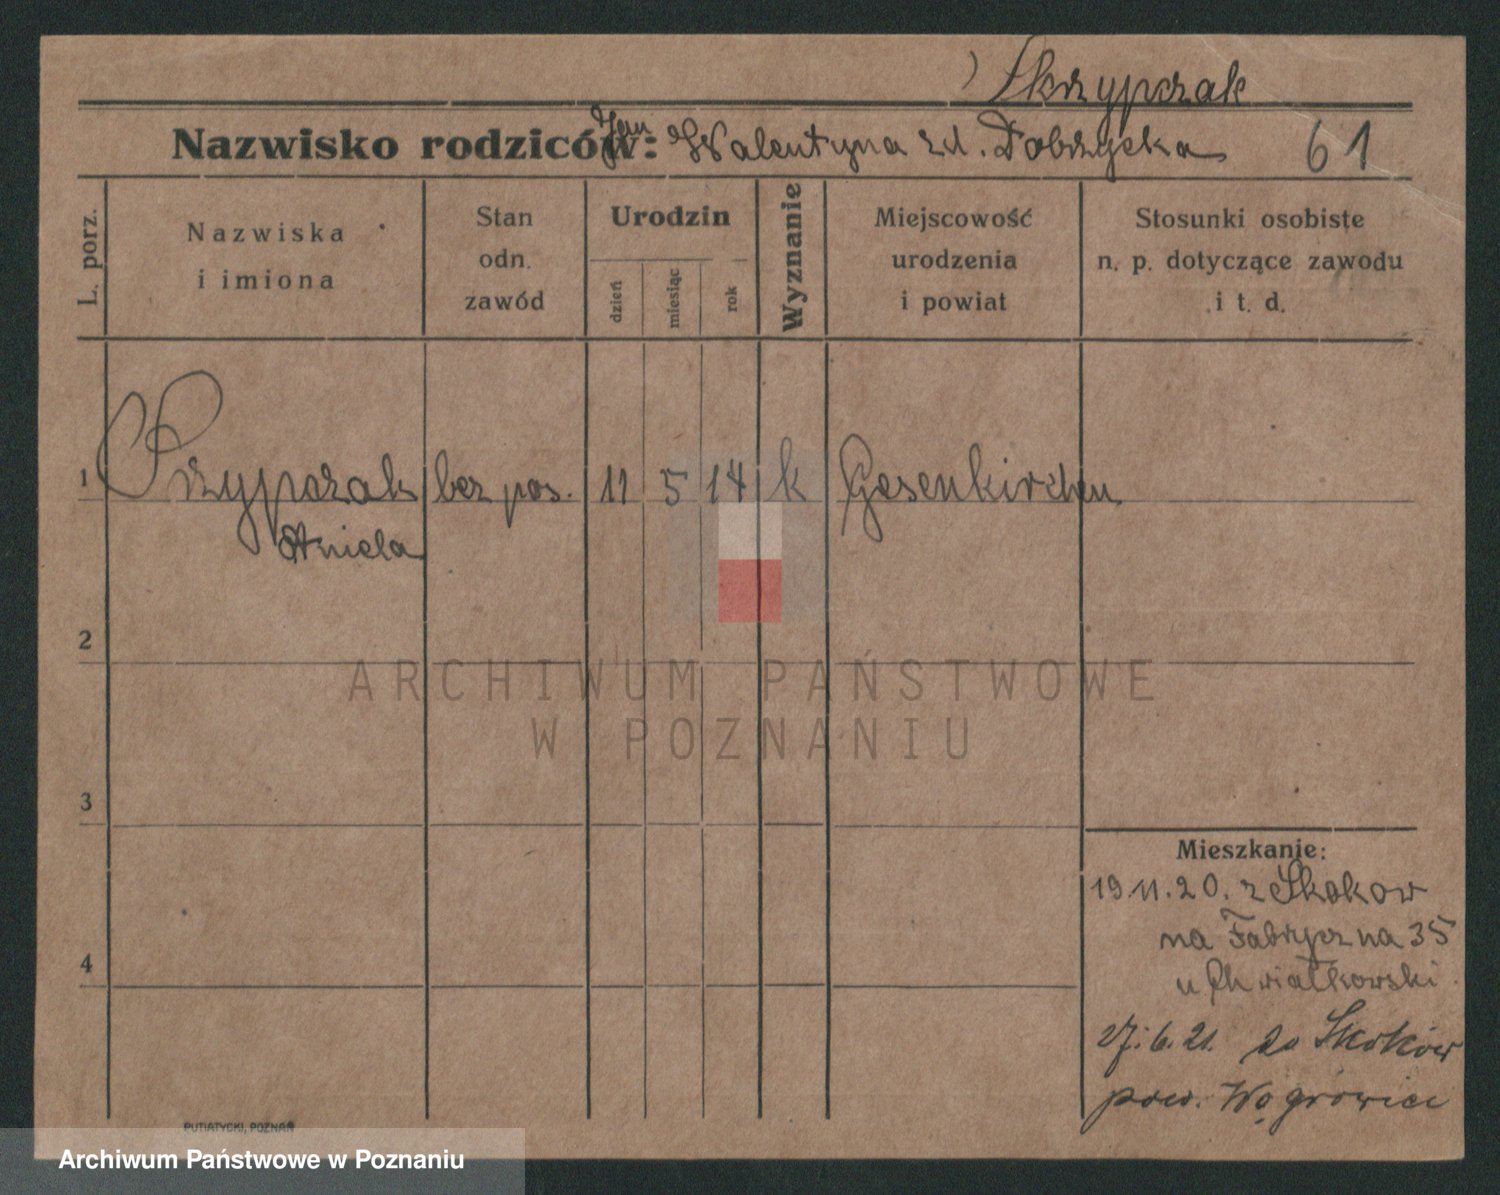 Skrzypczak
Nazwisko rodziców: Jan Walentyna zd. Dobrzycka 61
L. porz.
Nazwiska
i imiona
Stan
odn.
zawód
Urodzin
dzień
miesiąc
rok
Wyznanie
Miejscowość
urodzenia
i powiat
Stosunki osobiste
n. p. dotyczące zawodu
i t. d.
1 Skrzypczak bez pos. 11 5 14 k Gesenkirchen
Aniela
2
3
4
Mieszkanie:
19 11.20. z Skokow
na Fabryczna 35
u Chwiałkowski
27.6.21. do Skoków
pow. Wągrowiec
PUTIATYCKI, POZNAŃ
ARCHIWUM PAŃSTWOWE
W POZNANIU
Archiwum Państwowe w Poznaniu